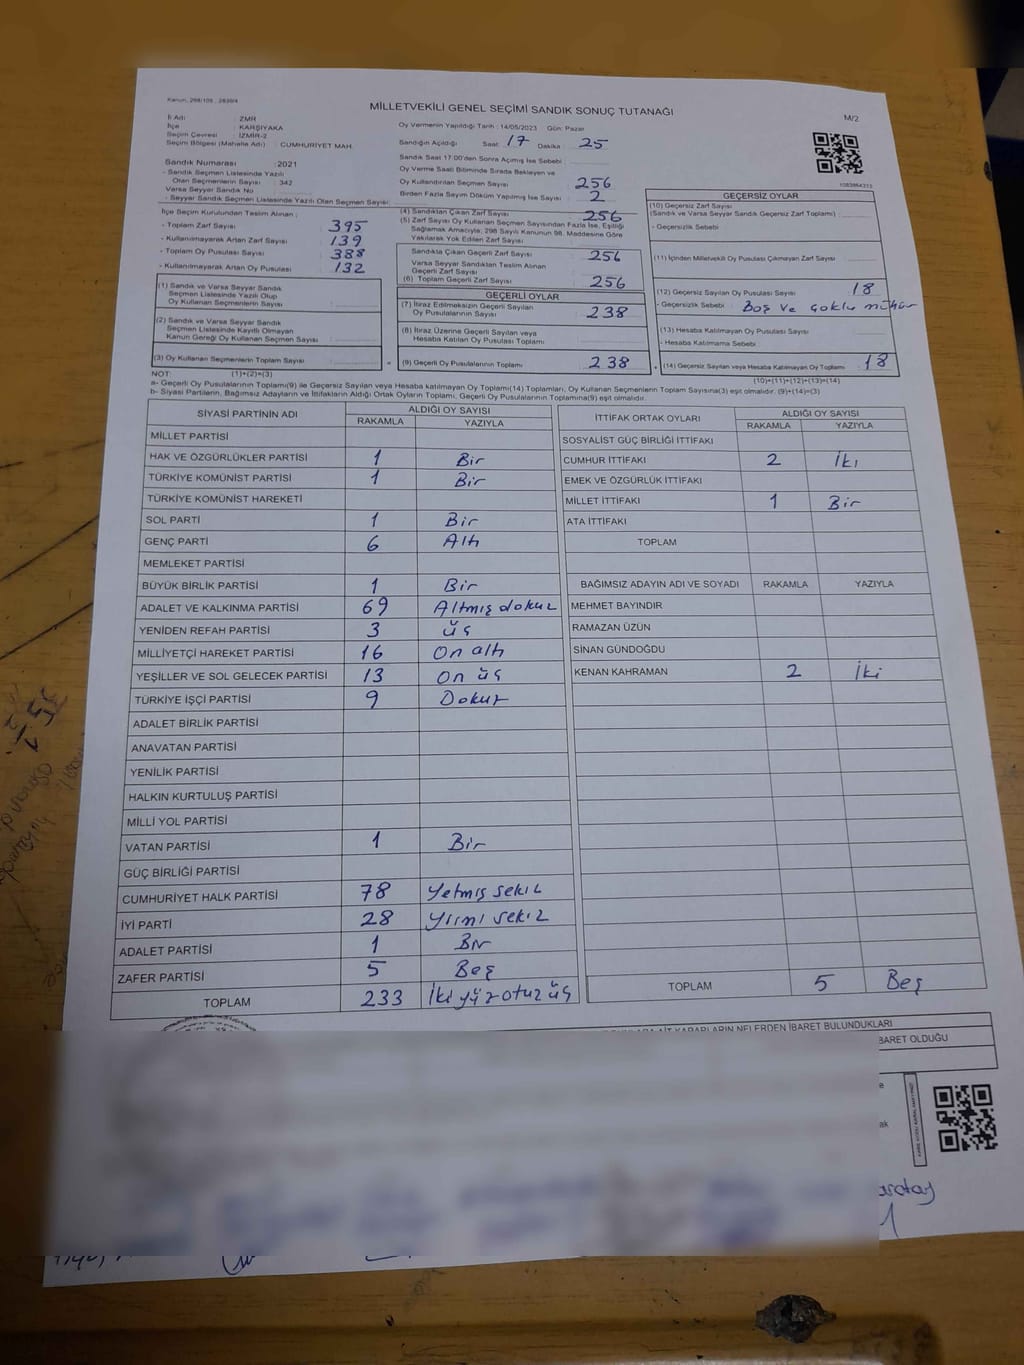 Kanun, 298/105 , 2839/4
MİLLETVEKİLİ GENEL SEÇİMİ SANDIK SONUÇ TUTANAĞI
M/2
İl Adı : ZMR
İlçe : KARŞIYAKA
Seçim Çevresi : İZMİR-2
Seçim Bölgesi (Mahalle Adı) : CUMHURİYET MAH.
Sandık Numarası : 2021
- Sandık Seçmen Listesinde Yazılı
Olan Seçmenlerin Sayısı : 342
Varsa Seyyar Sandık No
- Seyyar Sandık Listesinde Yazılı Olan Seçmen Sayısı:
İlçe Seçim Kurulundan Teslim Alınan ;
- Toplam Zarf Sayısı : 395
- Kullanılmayarak Artan Zarf Sayısı : 139
- Toplam Oy Pusulası Sayısı : 388
- Kullanılmayarak Artan Oy Pusulası : 132
(1) Sandık ve Varsa Seyyar Sandık
Seçmen Listesinde Yazılı Olup
Oy Kullanan Seçmenlerin Sayısı
(2) Sandık ve Varsa Seyyar Sandık
Seçmen Listesinde Kayıtlı Olmayan
Kanun Gereği Oy Kullanan Seçmen Sayısı
(3) Oy Kullanan Seçmenlerin Toplam Sayısı
Oy Vermenin Yapıldığı Tarih : 14/05/2023 Gün: Pazar
Sandığın Açıldığı Saat: 17 Dakika : 25
Sandık Saat 17:00'den Sonra Açılmış İse Sebebi
Oy Verme Saati Bitiminde Sırada Bekleyen ve
Oy Kullandırılan Seçmen Sayısı : 256
Birden Fazla Sayım Döküm Yapılmış İse Sayısı : 2
(4) Sandıktan Çıkan Zarf Sayısı : 256
(5) Zarf Sayısı Oy Kullanan Seçmen Sayısından Fazla İse, Eşitliği
Sağlamak Amacıyla; 298 Sayılı Kanunun 98. Maddesine Göre
Yakılarak Yok Edilen Zarf Sayısı
Sandıkta Çıkan Geçerli Zarf Sayısı : 256
Varsa Seyyar Sandıktan Teslim Alınan
Geçerli Zarf Sayısı
(6) Toplam Geçerli Zarf Sayısı : 256
GEÇERLİ OYLAR
(7) İtiraz Edilmeksizin Geçerli Sayılan
Oy Pusulalarının Sayısı : 238
(8) İtiraz Üzerine Geçerli Sayılan veya
Hesaba Katılan Oy Pusulası Toplamı
(9) Geçerli Oy Pusulalarının Toplamı : 238
1083864313
GEÇERSİZ OYLAR
(10) Geçersiz Zarf Sayısı
(Sandık ve Varsa Seyyar Sandık Geçersiz Zarf Toplamı)
- Geçersizlik Sebebi
(11) İçinden Milletvekili Oy Pusulası Çıkmayan Zarf Sayısı
(12) Geçersiz Sayılan Oy Pusulası Sayısı : 18
- Geçersizlik Sebebi : Boş ve çoklu mühür
(13) Hesaba Katılmayan Oy Pusulası Sayısı
- Hesaba Katılmama Sebebi
(14) Geçersiz Sayılan veya Hesaba Katılmayan Oy Toplamı : 18
NOT: (1)+(2)=(3) (10)+(11)+(12)+(13)=(14)
a- Geçerli Oy Pusulalarının Toplamı(9) ile Geçersiz Sayılan veya Hesaba katılmayan Oy Toplamı(14) Toplamları, Oy Kullanan Seçmenlerin Toplam Sayısına(3) eşit olmalıdır. (9)+(14)=(3)
b- Siyasi Partilerin, Bağımsız Adayların ve İttifakların Aldığı Ortak Oyların Toplamı, Geçerli Oy Pusulalarının Toplamına(9) eşit olmalıdır.
SİYASİ PARTİNİN ADI ALDIĞI OY SAYISI
RAKAMLA YAZIYLA
MİLLET PARTİSİ
HAK VE ÖZGÜRLÜKLER PARTİSİ 1 Bir
TÜRKİYE KOMÜNİST PARTİSİ 1 Bir
TÜRKİYE KOMÜNİST HAREKETİ
SOL PARTİ 1 Bir
GENÇ PARTİ 6 Altı
MEMLEKET PARTİSİ
BÜYÜK BİRLİK PARTİSİ 1 Bir
ADALET VE KALKINMA PARTİSİ 69 Altmış dokuz
YENİDEN REFAH PARTİSİ 3 üç
MİLLİYETÇİ HAREKET PARTİSİ 16 On altı
YEŞİLLER VE SOL GELECEK PARTİSİ 13 On üç
TÜRKİYE İŞÇİ PARTİSİ 9 Dokuz
ADALET BİRLİK PARTİSİ
ANAVATAN PARTİSİ
YENİLİK PARTİSİ
HALKIN KURTULUŞ PARTİSİ
MİLLİ YOL PARTİSİ
VATAN PARTİSİ 1 Bir
GÜÇ BİRLİĞİ PARTİSİ
CUMHURİYET HALK PARTİSİ 78 Yetmiş sekiz
İYİ PARTİ 28 Yirmi sekiz
ADALET PARTİSİ 1 Bir
ZAFER PARTİSİ 5 Beş
TOPLAM 233 İki yüz otuz üç
İTTİFAK ORTAK OYLARI ALDIĞI OY SAYISI
RAKAMLA YAZIYLA
SOSYALİST GÜÇ BİRLİĞİ İTTİFAKI
CUMHUR İTTİFAKI 2 İki
EMEK VE ÖZGÜRLÜK İTTİFAKI
MİLLET İTTİFAKI 1 Bir
ATA İTTİFAKI
TOPLAM
BAĞIMSIZ ADAYIN ADI VE SOYADI RAKAMLA YAZIYLA
MEHMET BAYINDIR
RAMAZAN ÜZÜN
SİNAN GÜNDOĞDU
KENAN KAHRAMAN 2 İki
TOPLAM 5 Beş
AİT KARARLARIN NELERDEN İBARET BULUNDUKLARI
BARET OLDUĞU